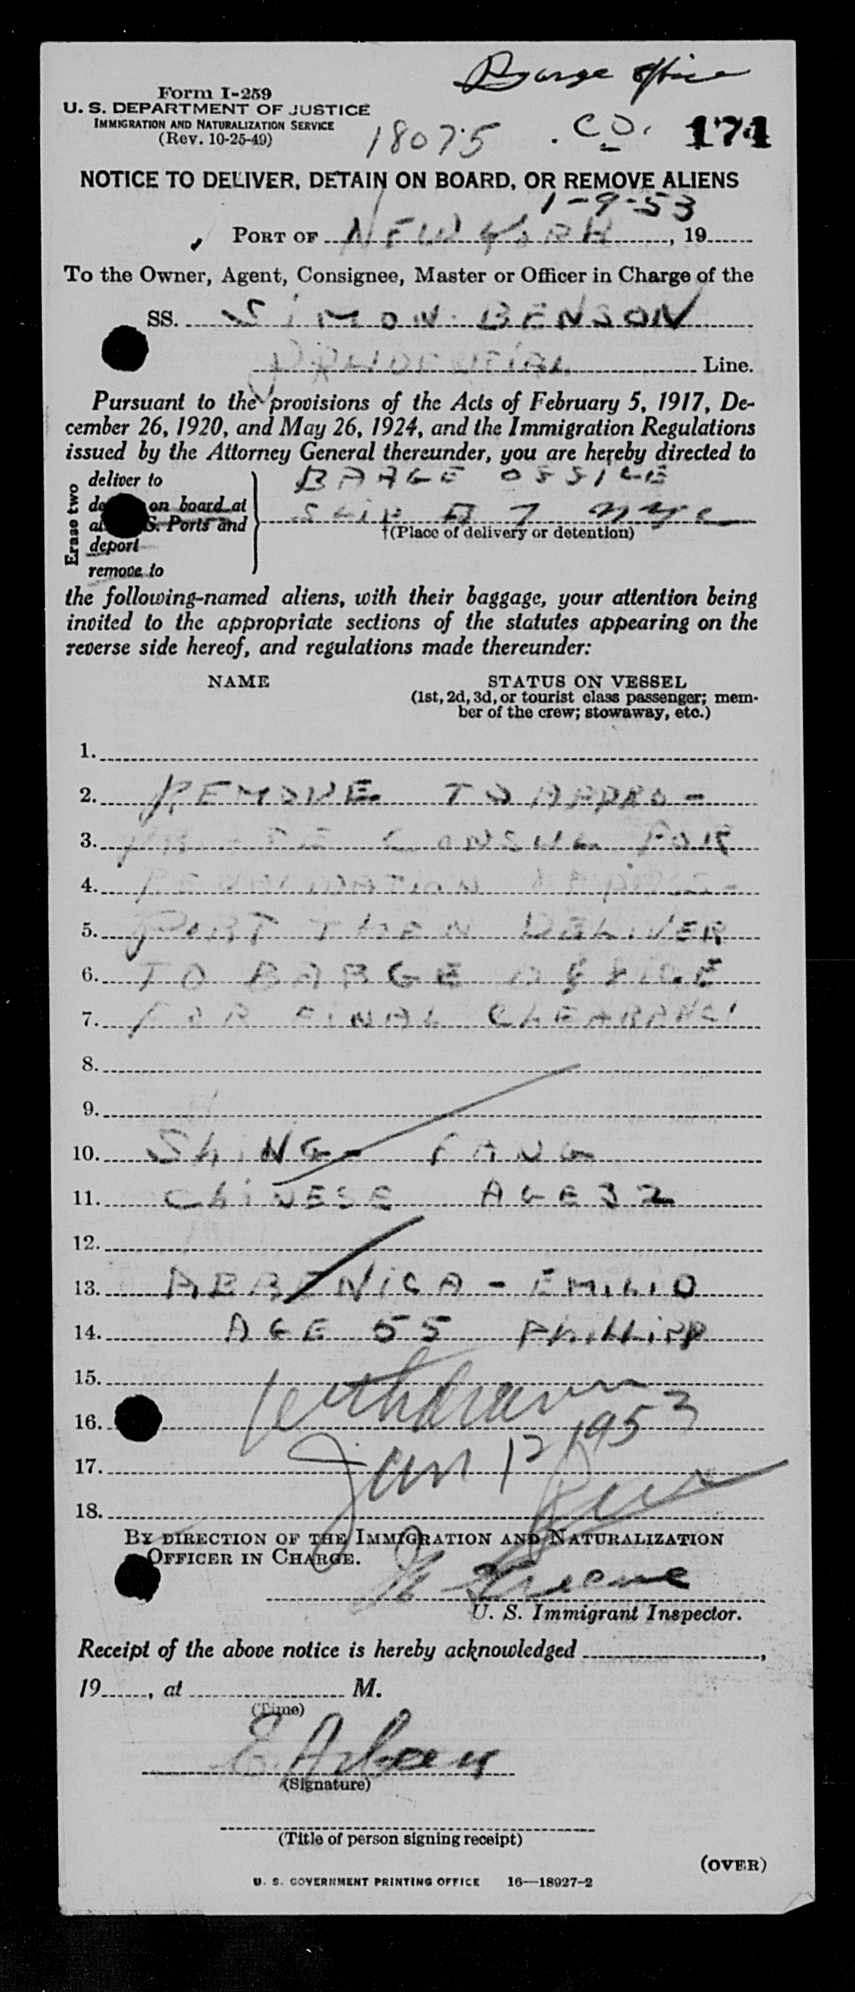 Barge Office
Form I-259
U. S. DEPARTMENT OF JUSTICE
IMMIGRATION AND NATURALIZATION SERVICE
(Rev. 10-25-49)
18075 . CO. 174
NOTICE TO DELIVER, DETAIN ON BOARD, OR REMOVE ALIENS
1-9-53
PORT OF NEW YORK, 19
To the Owner, Agent, Consignee, Master or Officer in Charge of the
SS. SIMON BENSON
Line.
Pursuant to the provisions of the Acts of February 5, 1917, De-
cember 26, 1920, and May 26, 1924, and the Immigration Regulations
issued by the Attorney General thereunder, you are hereby directed to
Erase two
deliver to
on board at
S. Ports and
deport
remove to
BARGE OFFICE
SLIP 7 NYC
†(Place of delivery or detention)
the following-named aliens, with their baggage, your attention being
invited to the appropriate sections of the statutes appearing on the
reverse side hereof, and regulations made thereunder:
NAME STATUS ON VESSEL
(1st, 2d, 3d, or tourist class passenger; mem-
ber of the crew; stowaway, etc.)
1.
2. REMOVE TO APPRO-
3. CONSUL FOR
4.
5. PORT THEN DELIVER
6. TO BARGE OFFICE
7. FOR FINAL CLEARANCE
8.
9.
10. SHING - FANG
11. CHINESE AGE 32
12.
13. ABRENICA - EMILIO
14. AGE 55 PHILLIPP
15. Withdrawn
16. 1953
17. Jan 12
18.
BY DIRECTION OF THE IMMIGRATION AND NATURALIZATION
OFFICER IN CHARGE.
Greene
U. S. Immigrant Inspector.
Receipt of the above notice is hereby acknowledged ,
19 , at M.
(Time)
E.
(Signature)
(Title of person signing receipt)
(OVER)
U. S. GOVERNMENT PRINTING OFFICE 16—18927-2